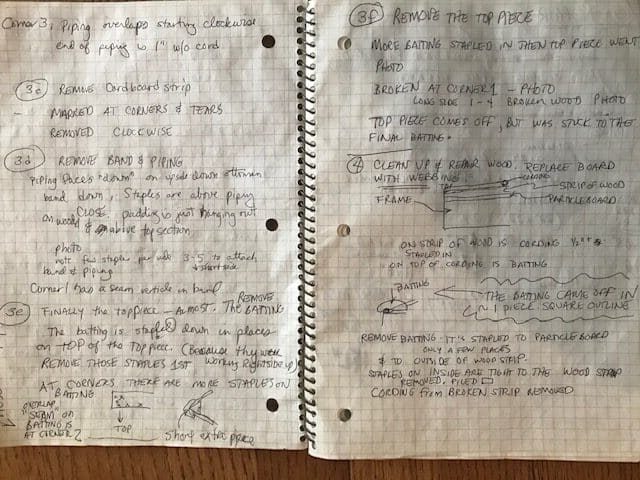 Corner 3, Piping overlaps starting clockwise
end of piping is 1" w/o cord
3c REMOVE Cardboard strip
- MARKED AT CORNERS & TEARS
REMOVED CLOCKWISE
3d REMOVE BAND & PIPING
Piping faces "down" on upside down ottoman
band down, Staples are above piping
on wood CLOSE, padding is just hanging out
& above top section
photo
note few staples per side 3-5 to attach
band & piping short side
Corner 1 has a seam verticle in band
3e FINALLY the top piece - ALMOST. REMOVE The BATTING
The batting is stapled down in places
on TOP of the TOP piece. (Because they were
REMOVE THOSE STAPLES 1ST working Rightside up)
AT CORNERS THERE ARE MORE STAPLES ON
BATTING
OVERLAP
"SEAM" ON
BATTING IS
AT CORNER 2
TOP
Short extra piece
3f REMOVE THE TOP PIECE
MORE BATTING STAPLED IN THEN TOP PIECE WENT
PHOTO
BROKEN AT CORNER 1 - PHOTO
LONG SIDE 1-4 BROKEN WOOD PHOTO
TOP PIECE COMES OFF, BUT WAS STUCK TO THE
FINAL BATTING.
4 CLEAN UP & REPAIR WOOD, REPLACE BOARD
WITH WEBBING
TOP
CORDING
STRIP OF WOOD
FRAME
PARTICLEBOARD
ON STRIP OF WOOD IS CORDING 1/2"
STAPLED IN
ON TOP OF CORDING IS BATTING
BATTING
THE BATTING CAME OFF IN
1 PIECE. SQUARE OUTLINE
REMOVE BATTING IT'S STAPLED TO PARTICLEBOARD
ONLY A FEW PLACES
& TO OUTSIDE OF WOOD STRIP.
STAPLES ON INSIDE ARE TIGHT TO THE WOOD STRIP
REMOVED,
CORDING from BROKEN STRIP REMOVED